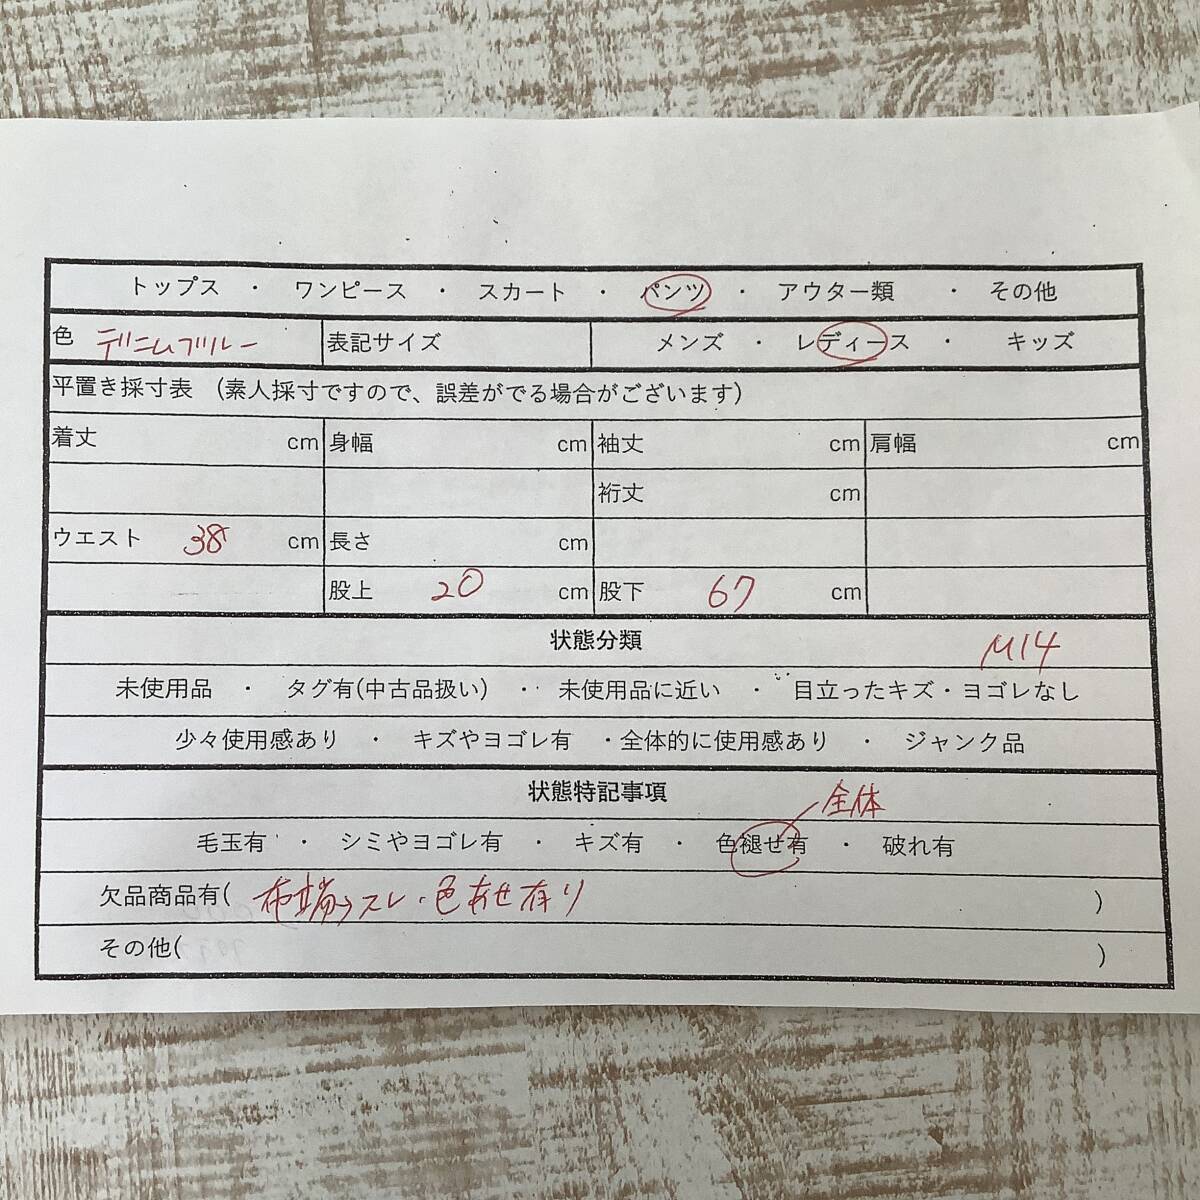 トップス ・ ワンピース ・ スカート ・ パンツ ・ アウター類 ・ その他
色 デニムブルー 表記サイズ メンズ ・ レディース ・ キッズ
平置き採寸表 (素人採寸ですので、誤差がでる場合がございます)
着丈 cm 身幅 cm 袖丈 cm 肩幅 cm
裄丈 cm
ウエスト 38 cm 長さ cm
股上 20 cm 股下 67 cm
状態分類 M14
未使用品 ・ タグ有(中古品扱い) ・ 未使用品に近い ・ 目立ったキズ・ヨゴレなし
少々使用感あり ・ キズやヨゴレ有 ・全体的に使用感あり ・ ジャンク品
状態特記事項 全体
毛玉有 ・ シミやヨゴレ有 ・ キズ有 ・ 色褪せ有 ・ 破れ有
欠品商品有( 布端うスレ・色あせ有り )
その他( )